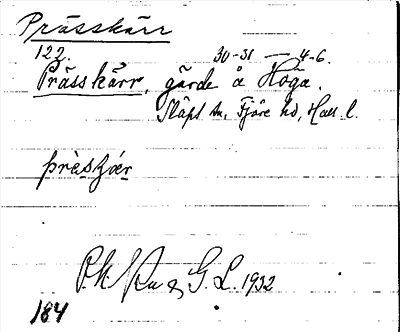 Prässkärr
122. 30-31 — 4-6.
Prässkärr, gärde å Höga.
Släps sn, Fjäre hd, Hall. l.
G. L. 1932
184